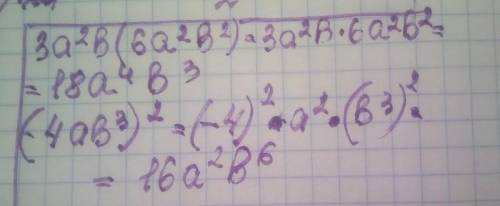 3a²в(6a²в²)=3a²в·6a²в²=
=18a⁴в³
(-4aв³)²=(-4)²·a²·(в³)²=
= 16a²в⁶